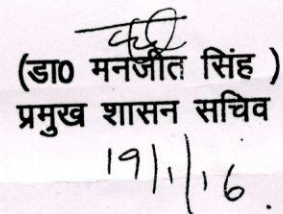 (डा0 मनजीत सिंह )
प्रमुख शासन सचिव
19/1/16.